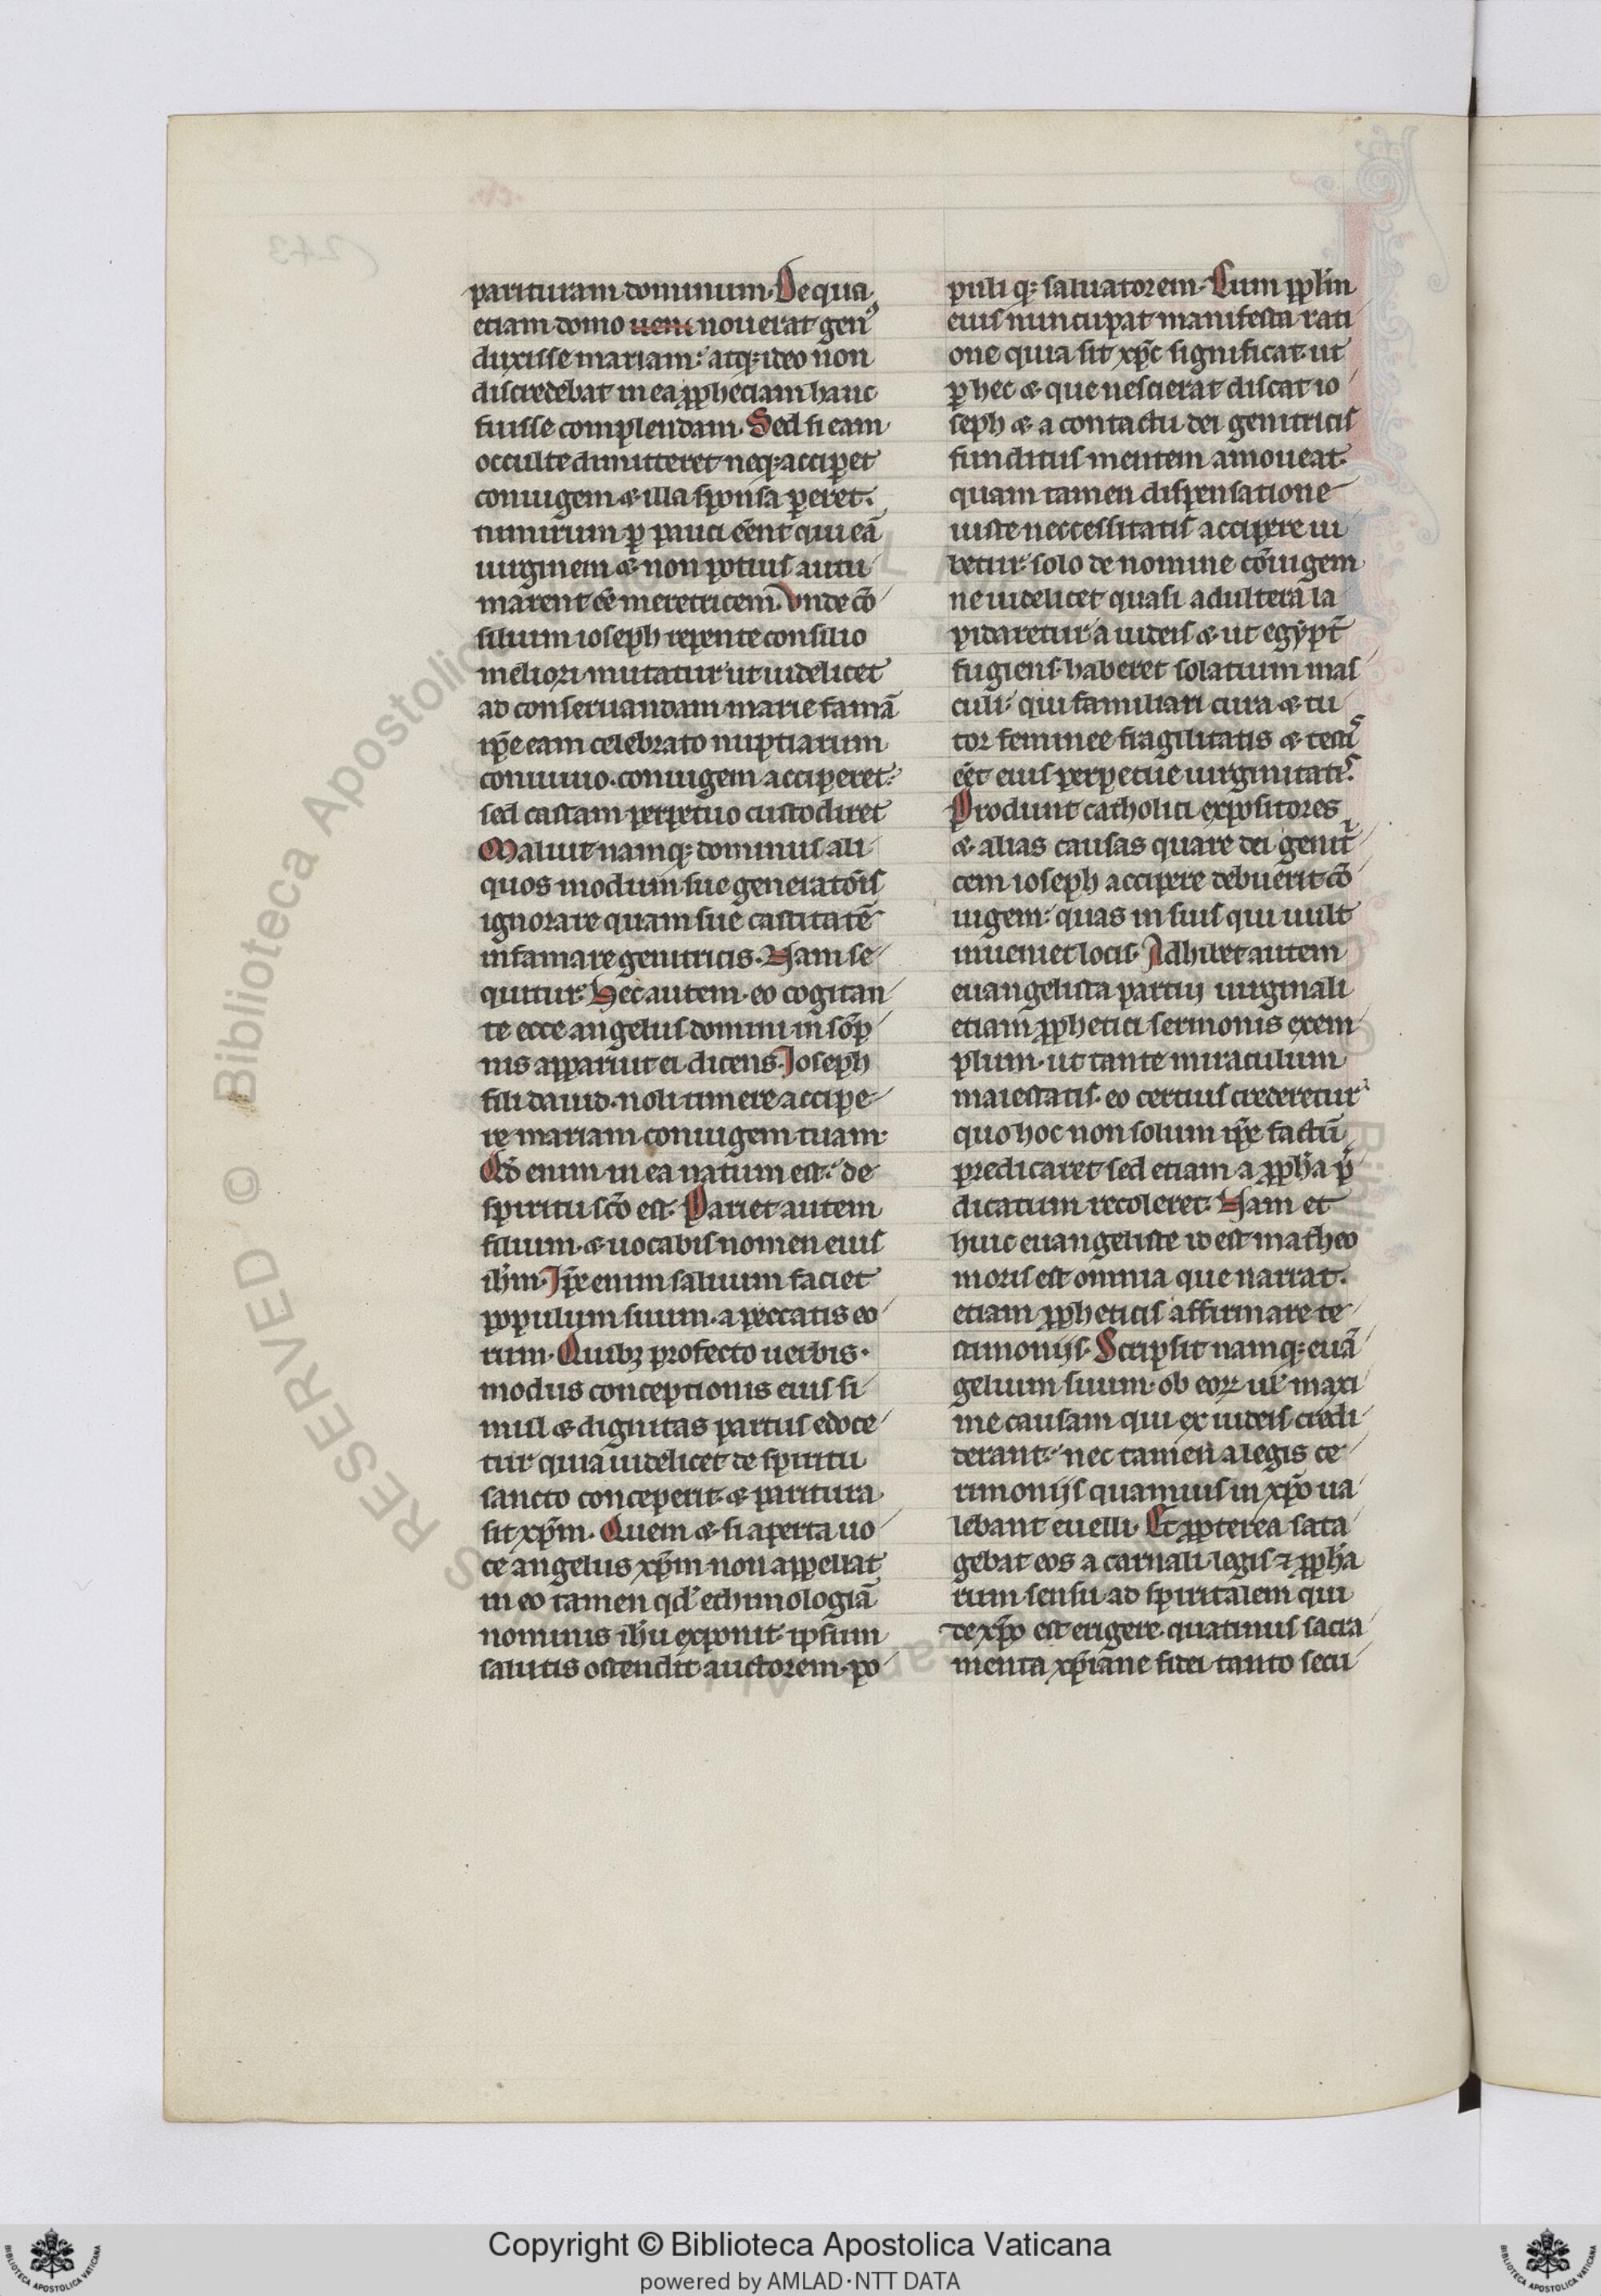 parituram dominum. De qua
etiam domo ueni nouerat gen᷒
duxisse mariam: atq; ideo non
discredebat in ea ꝓphetiam hanc
fuisse complendam. Sed si eam
occulte dimitteret neq; acciꝑet
coniugem & illa sponsa ꝑeret.
nimirum ꝑ pauci eēnt qui eā
uirginem & non potius autu
marent eē meretricem. Vnde cō
silium ioseph repente consilio
meliori mutatur ut uidelicet
ad conseruandam marie famā
ip̄e eam celebrato nuptiarum
conuiuio. coniugem acciperet:
sed castam perpetuo custodiret
Maluit namq; dominus ali
quos modum sue generatōis
ignorare quam sue castitatē
infamare genitricis. Nam se
quitur. Hec autem. eo cogitan
te ecce angelus domini in sōp
nis apparuit ei dicens. Ioseph
fili dauid. noli timere accipe
re mariam coniugem tuam.
Qd̄ enim in ea natum est. de
spiritu sc̄o est. Pariet autem
filium. & uocabis nomen eius
ih̄m. Ip̄e enim saluum faciet
populum suum. a peccatis eo
rum. Quibꝫ profecto uerbis.
modus conceptionis eius si
mul & dignitas partus edoce
tur quia uidelicet de spiritu
sancto conceperit. & paritura
sit xp̄m. Quem & si aperta uo
ce angelus xp̄m non appellat
in eo tamen qd̓ ethimologiā
nominis ih̄u exponit. ipsum
salutis ostendit auctorem. po
puli q; saluatorem. Cum ppl̄m
eius nuncupat manifesta rati
one quia sit xp̄c significat. ut
ꝑ hec & que nescierat discat io
seph & a contactu dei genitricis
funditus mentem amoueat.
quam tamen dispensatione
iuste neccessitatis accipere iu
betur. solo de nomine cōiugem
ne uidelicet quasi adultera la
pidaretur a iudeis & ut egypt̄
fugiens. haberet solatium mas
culi: qui familiari cura & tu
tor feminee fragilitatis & testis
eēt eius perpetue uirginitatis.
Produnt catholici expositores
& alias causas quare dei genitͥ
cem ioseph accipere debuerit cō
iugem: quas in suis qui uult
inueniet locis. Adhibet autem
euangelista partui uirginali
etiam ꝓphetici sermonis exem
plum. ut tante miraculum
maiestatis. eo certius crederetur
quo hoc non solum ip̄e factū
predicaret sed etiam a ꝓph̄a p̄
dicatum recoleret. Nam et
huic euangeliste id est matheo
moris est omnia que narrat.
etiam ꝓpheticis affirmare te
stimoniis. Scripsit namq; euā
gelium suum. ob eoꝝ ul̓ maxi
me causam qui ex iudeis credi
derant. nec tamen a legis ce
rimoniis quamuis in xp̄o ua
lebant euelli. Et ꝓpterea sata
gebat eos a carnali legis ⁊ ꝓph̄a
rum sensu ad spiritalem qui
de xp̄o est erigere quatinus sacra
menta xp̄iane fidei tanto secu
RESERVED © Biblioteca Apostolica
Copyright © Biblioteca Apostolica Vaticana
powered by AMLAD·NTT DATA